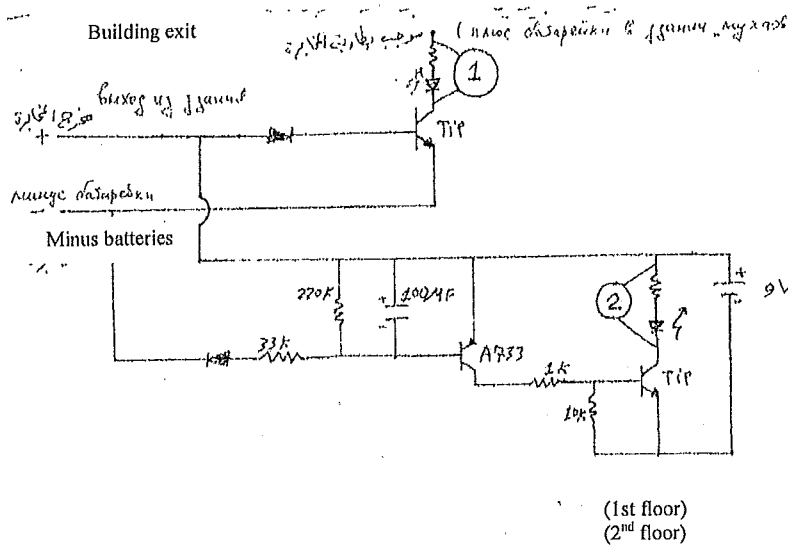 Building exit
(плюс батарейки в здании
1
выход из здания
+
Tip
минус батарейки
Minus batteries
220K
+ 100MF
-
2
+
9V
33K
A733
1K
Tip
10K
(1st floor)
(2nd floor)